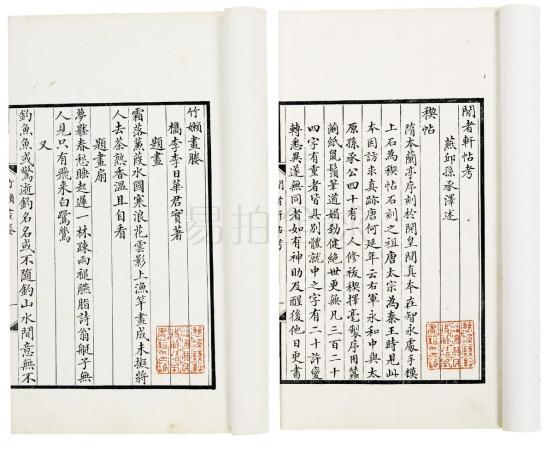 閒者軒帖考
燕邱孫承澤述
禊帖
隋本蘭亭序刻於開皇間真本在智永處手模
上石為禊帖石刻之祖唐太宗為秦王時見此
本因訪求真跡唐何延年云右軍永和中與太
原孫承公四十有一人修祓禊擇毫製序用蠶
繭紙鼠鬚筆遒媚勁健絕世更無凡三百二十
四字有重者皆具別體就中之字有二十許變
轉悉異遂無同者如有神助及醒後他日更書
閒者軒帖考
竹嬾畫媵
檇李李日華君實著
題畫
霜落蒹葭水國寒浪花雲影上漁竿畫成未擬將
人去茶熟香溫且自看
題畫扇
夢鼗春愁睡起遲一林疎雨褪臙脂詩翁艇子無
人見只有飛来白鷺鷥
又
釣魚魚或驚逝釣名名或不隨釣山水間意無不
竹嬾畫媵
易拍